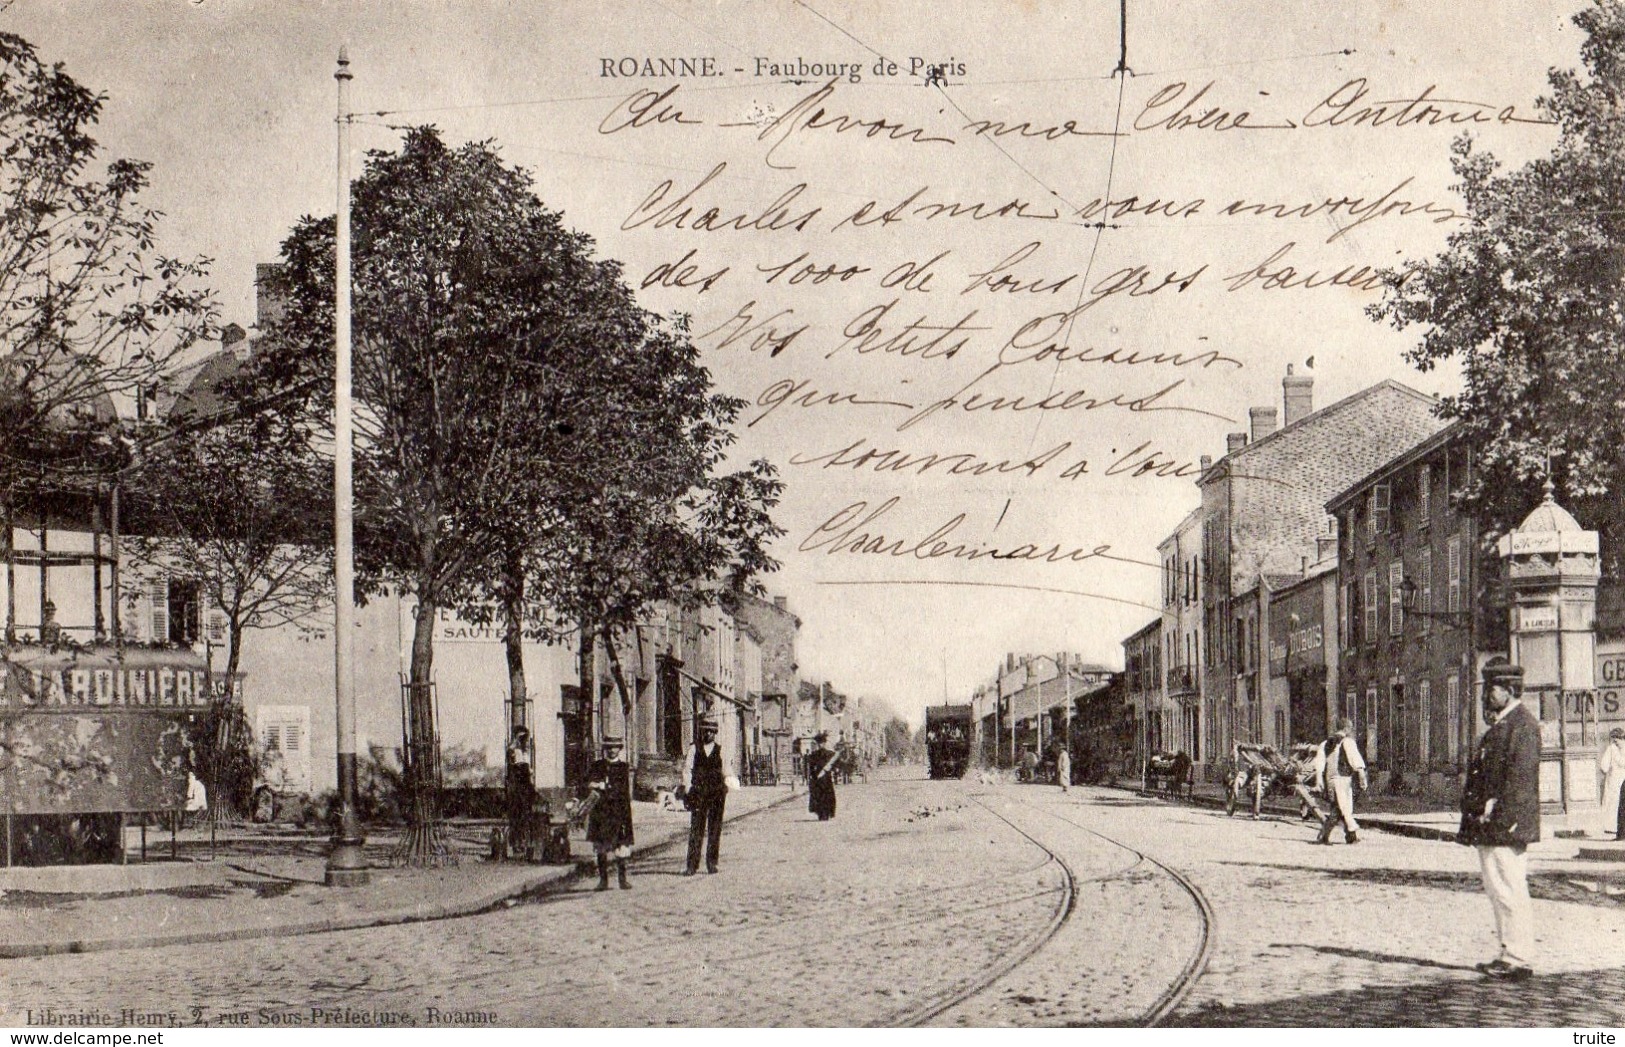 ROANNE. - Faubourg de Paris
au Revoir ma Chere Antonia
Charles et moi vous envoyons
des 1000 de bons gros baisers
Vos Petits Cousins
qui pensent
souvent à vous
Charlemarie
SAUTE
JARDINIÈRE
DUBOIS
GE
VINS
Librairie Henry, 2, rue Sous-Préfecture, Roanne
www.delcampe.net
truite